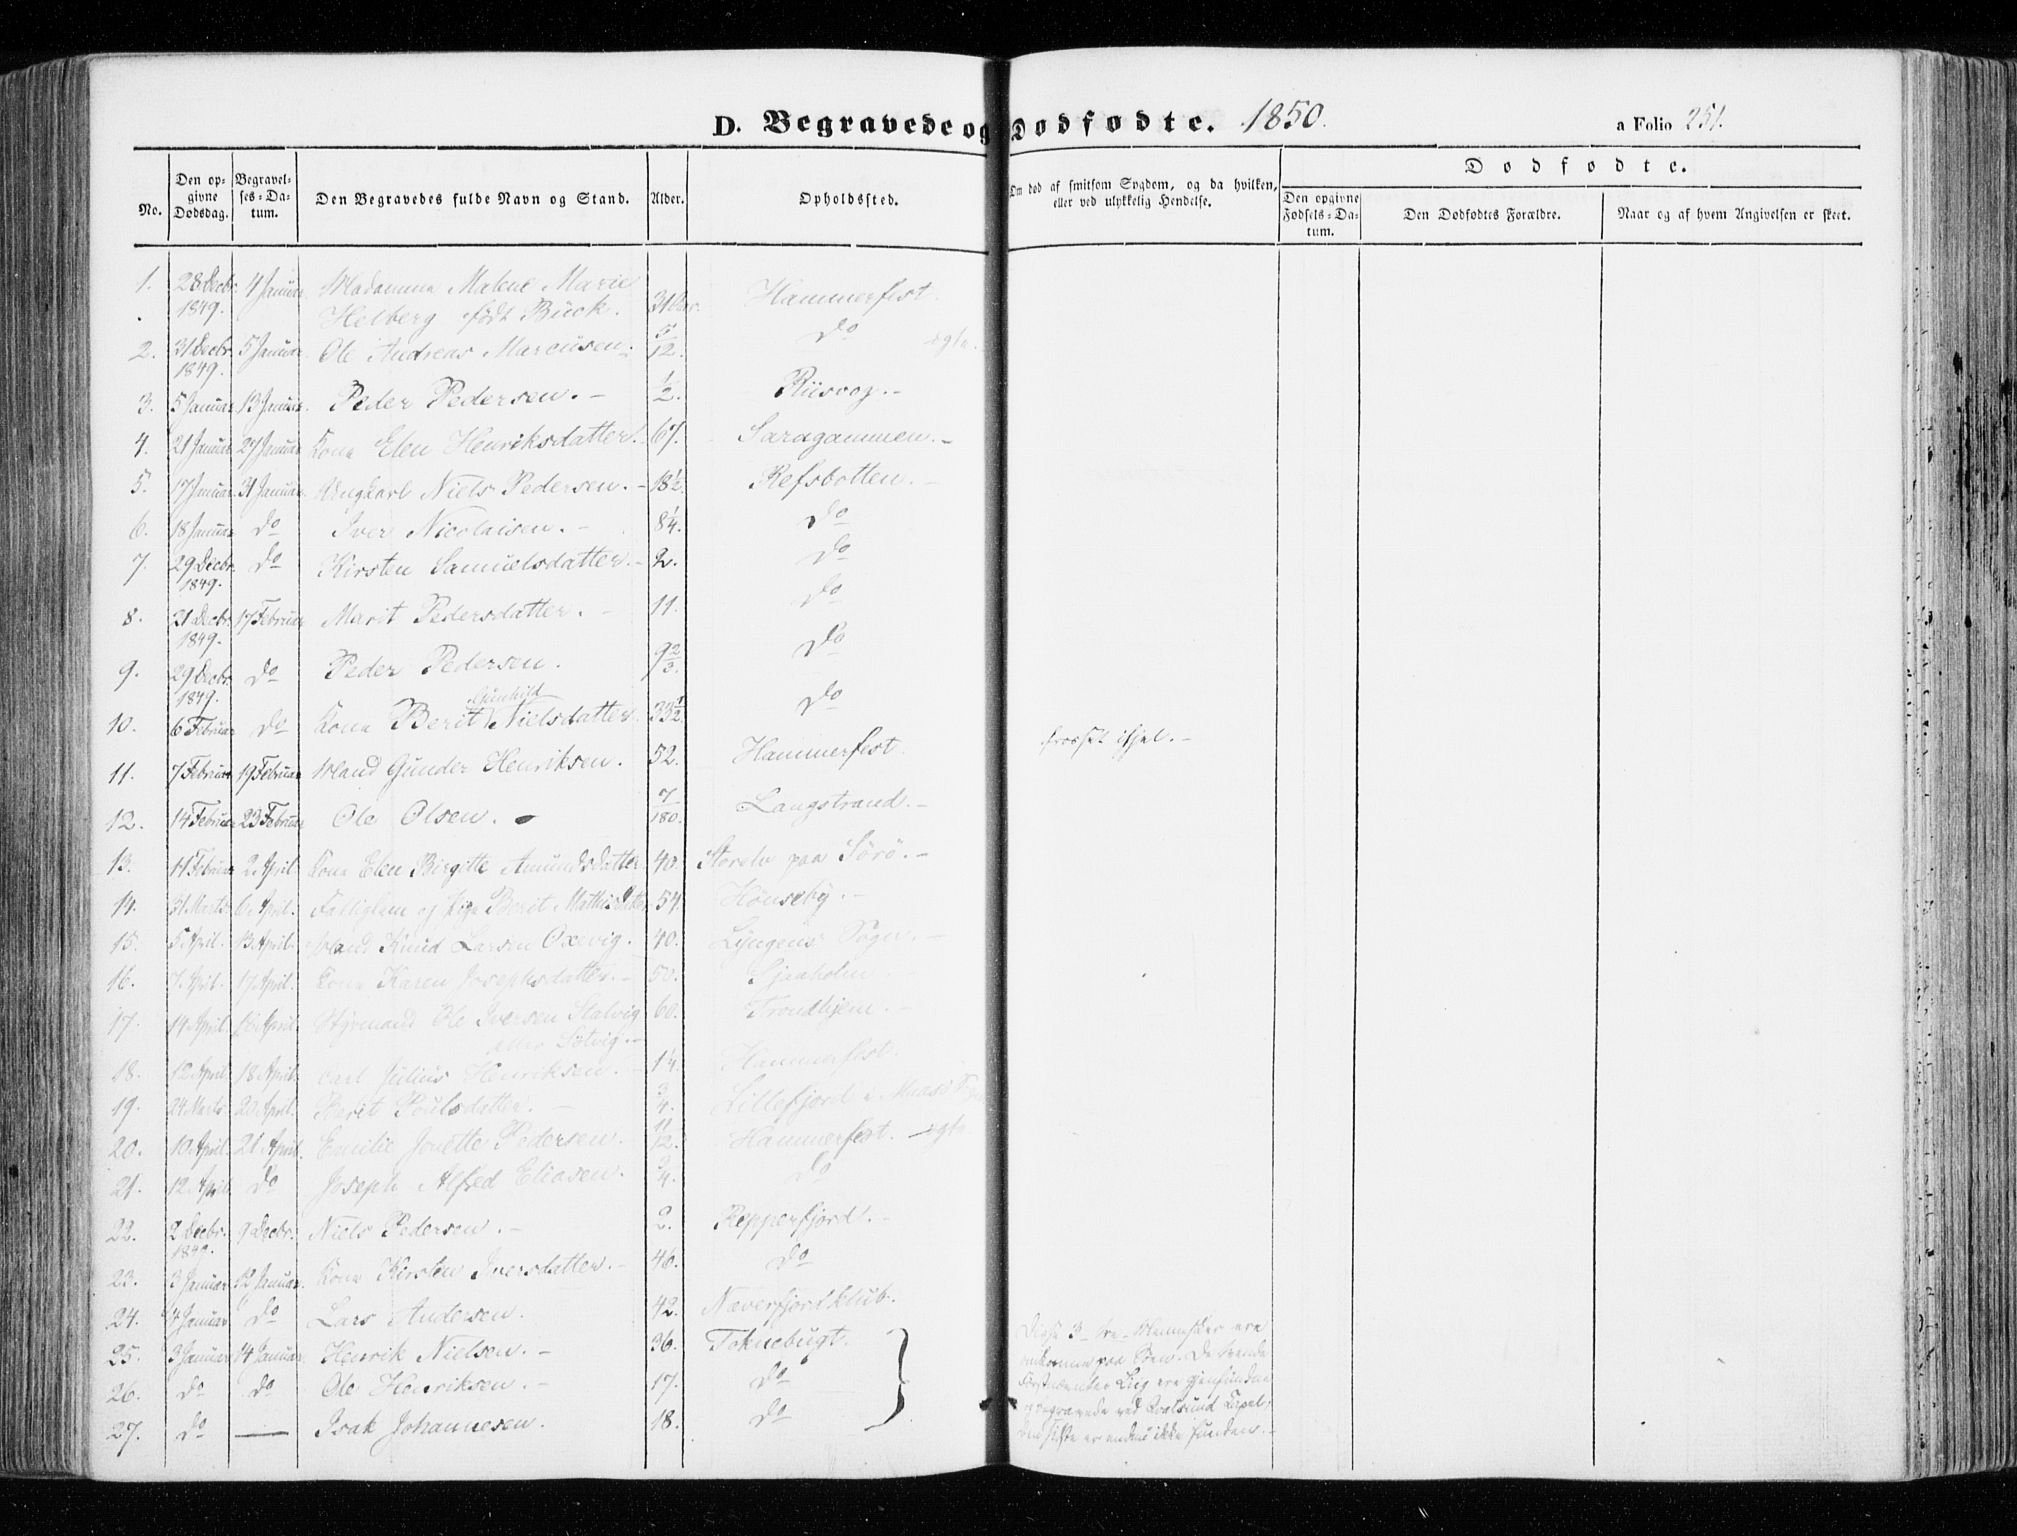 D. Begravede og Dodfodte. 1850.
a Folio 251.
No.
Den opgivne Dodsdag.
Begravelses-Datum.
Den Begravedes fulde Navn og Stand.
Alder.
Opholdssted.
Om dod af smitsom Sygdom, og da hvilken, eller ved ulykkelig Hendelse.
Dodfodte.
Den opgivne Fodsels-Datum.
Den Dodfodtes Forældre.
Naar og af hvem Angivelsen er skeet.
1. 28 Decbr. 1849. 4 Januar Madamme Malene Marie
Helberg født Buck. 31 Hammerfest.
2. 31 Decbr. 1849. 5 Januar Ole Andreas Marcusen. 5/12. Do
3. 5 Januar 13 Januar Peder Pedersen. – 1/2. Riisvog. –
4. 21 Januar 27 Januar Kone Elen Henriksdatter. 67. Saragammen. –
5. 17 Januar 31 Januar Ungkarl Niels Pedersen. – 18 1/2. Refsbotten. –
6. 18 Januar Do Iver Nicolaisen. – 8 1/4. Do
7. 29 Decbr. 1849. Do Kirsten Samuelsdatter. – 2. Do
8. 21 Decbr. 1849. 17 Februar Marit Pedersdatter. – 11. Do
9. 29 Decbr. 1849. Do Peder Pedersen. 9 2/3. Do
10. 6 Februar Do Kone Berit Gunhild Nielsdatter 33 1/2. Do
11. 7 Februar 19 Februar Mand Gunder Henriksen. 52. Hammerfest. frosset ihjel. –
12. 14 Februar 23 Februar Ole Olsen. 7/180. Langstrand. –
13. 14 Februar 2 April Kone Elen Birgitte Amundsdatter 40. Storelv paa Sörö. –
14. 31 Marts 6 April. Fattiglem og Pige Berit Mathisdatter 54 Hönseby. –
15. 5 April. 13 April. Mand Knud Larsen Oxevig. 40. Lyngens Sogn. –
16. 7 April. 17 April. Kone Karen Josephsdatter. – 50. Sjaaholm –
17. 14 April. April. Styrmand Ole Iversen Stalvig
eller Solvig. – 60. Trondhjem. –
18. 12 April. 18 April. Carl Julius Henriksen. – 1 1/4. Hammerfest.
19. 24 Marts 20 April. Berit Poulsdatter. – 3/4. Lillefjord i Maasö Sogn
20. 10 April. 21 April. Emilie Jonette Pedersen. 11/12. Hammerfest.
21. 12 April Do Joseph Alfred Eliasen. 3/4. Do
22. 2 Decbr. 1849. 9 Decbr. Niels Pedersen. – 2. Repperfjord. –
23. 3 Januar 12 Januar. Kone Kirsten Iversdatter. – 46. Do
24. 4 Januar Do Lars Andersen. 42. Næverfjordklub.
25. 3 Januar 14 Januar Henrik Nielsen. – 36. Toknebugt.
26. Do Do Ole Henriksen. – 17. Do
27. Do — Isak Johannesen. 18. Do
Disse 3 – tre – Mennesker ere
omkomne paa Söen. De tvende
förstnævntes Liig ere gjenfundne
og begravede ved Qvalsund Capel,
den sidste er endnu ikke funden. –